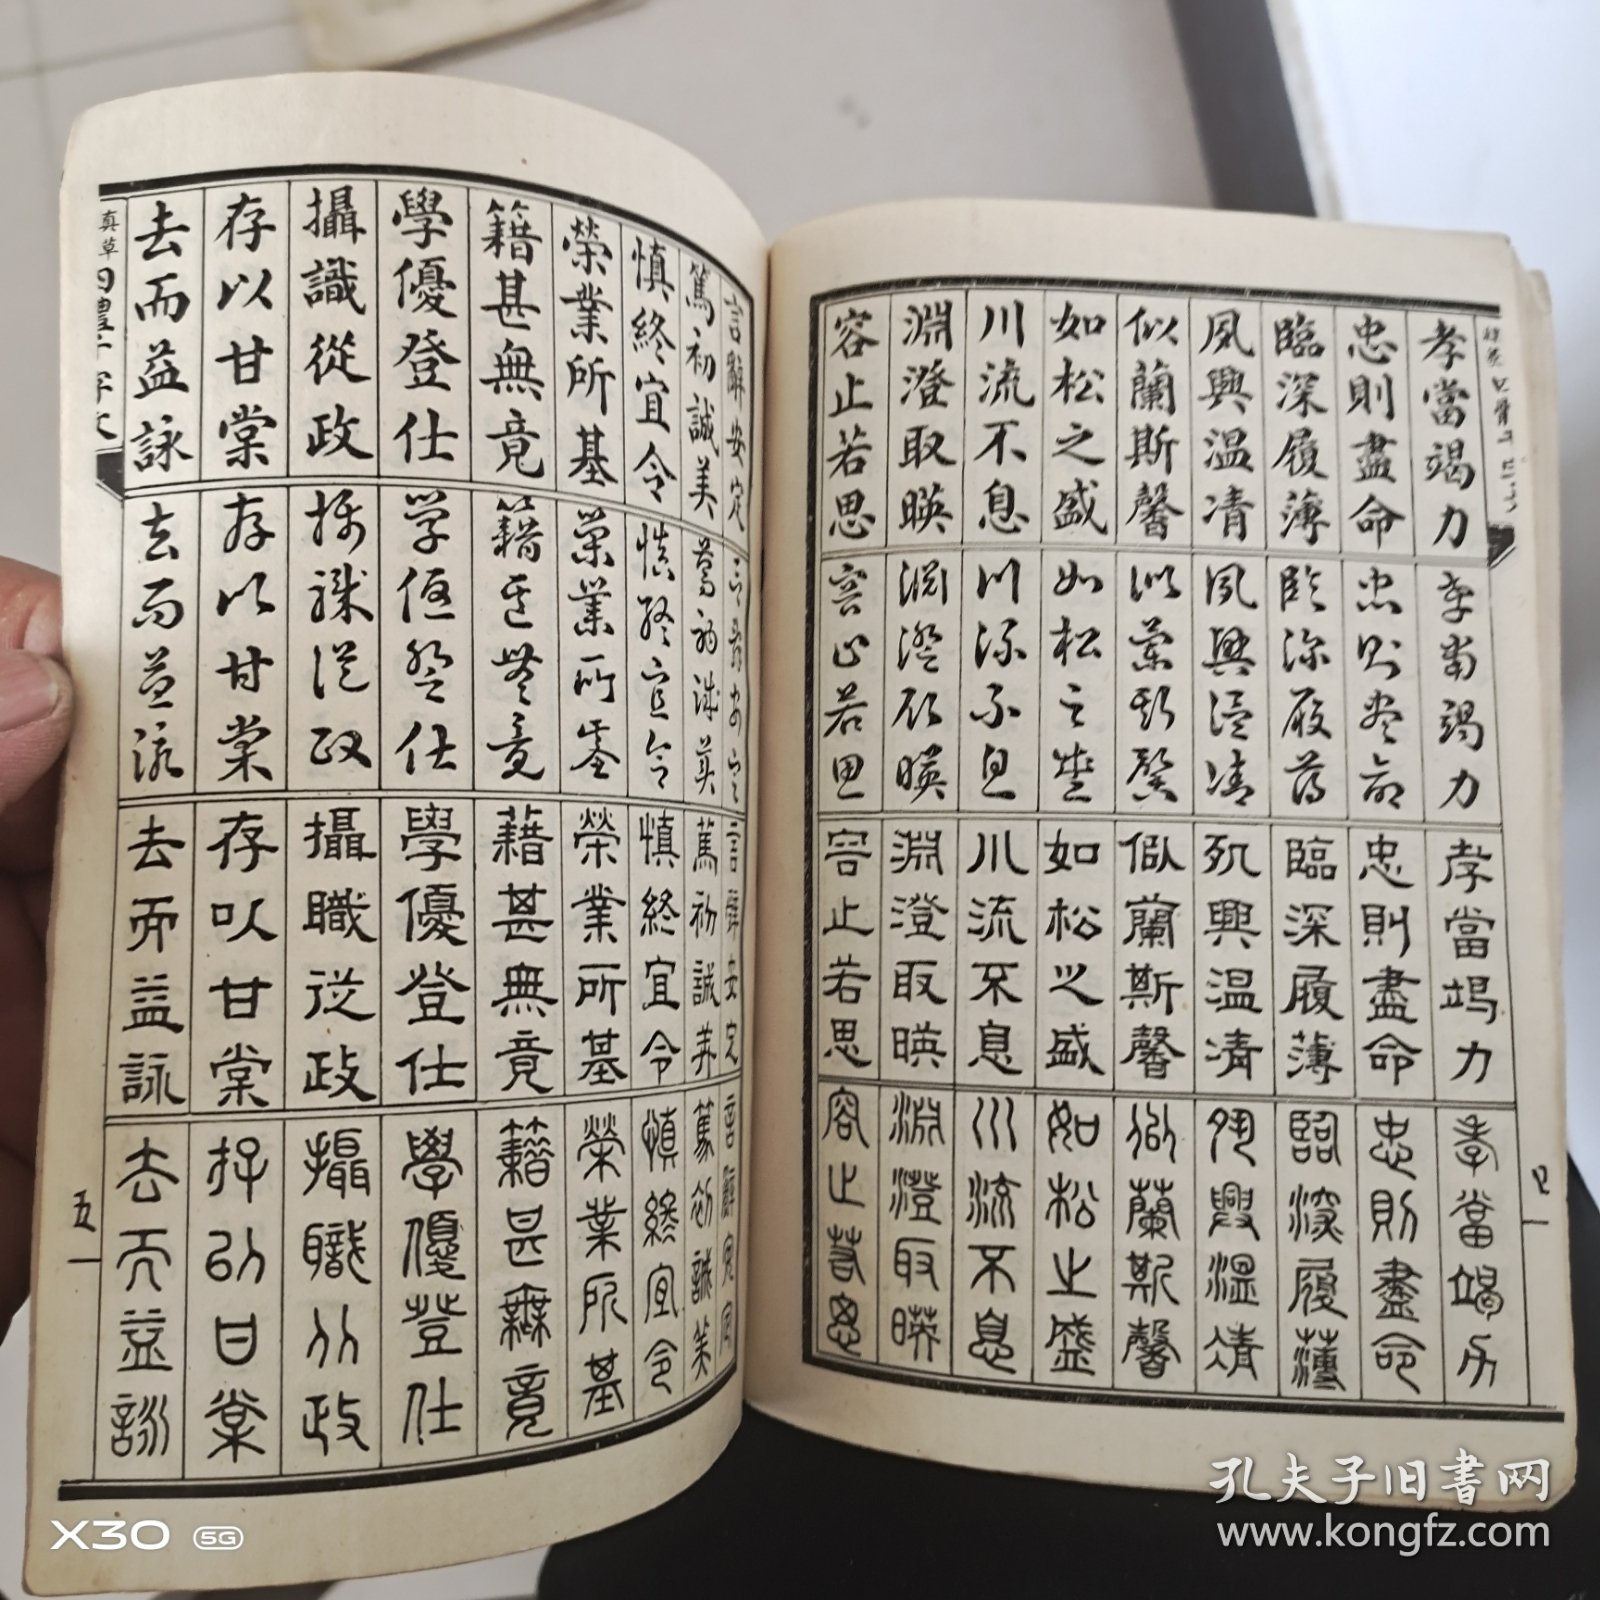 孝當竭力
忠則盡命
臨深履薄
夙興温凊
似蘭斯馨
如松之盛
川流不息
淵澄取暎
容止若思
孝當竭力
忠則盡命
臨深履薄
夙興温凊
似蘭斯馨
如松之盛
川流不息
淵澄取暎
容止若思
孝當竭力
忠則盡命
臨深履薄
夙興温凊
似蘭斯馨
如松之盛
川流不息
淵澄取暎
容止若思
孝當竭力
忠則盡命
臨深履薄
夙興温凊
似蘭斯馨
如松之盛
川流不息
淵澄取暎
容止若思
言辭安定
篤初誠美
慎終宜令
榮業所基
籍甚無竟
學優登仕
攝識從政
存以甘棠
去而益詠
言辭安定
篤初誠美
慎終宜令
榮業所基
籍甚無竟
學優登仕
攝職從政
存以甘棠
去而益詠
言辭安定
篤初誠美
慎終宜令
榮業所基
藉甚無竟
學優登仕
攝職從政
存以甘棠
去而益詠
言辭安定
篤初誠美
慎終宜令
榮業所基
籍甚無竟
學優登仕
攝職從政
存以甘棠
去而益詠
真草四體千字文
五
孔夫子旧书网
www.kongfz.com
X30 5G